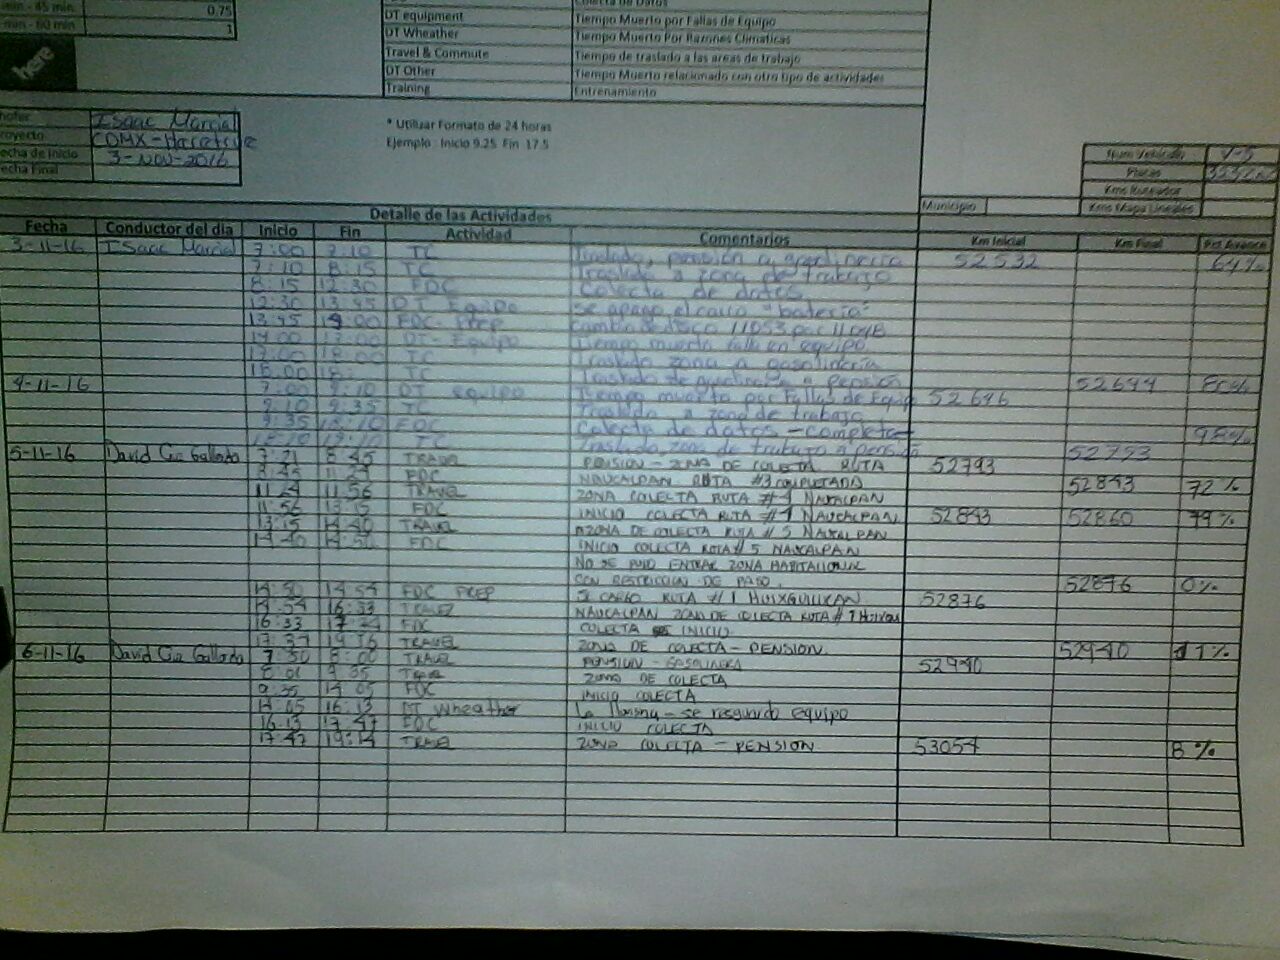 min - 45 min 0.75
min - 60 min 1
here
Colecta de Datos
DT equipment Tiempo Muerto por Fallas de Equipo
DT Wheather Tiempo Muerto Por Razones Climaticas
Travel & Commute Tiempo de traslado a las areas de trabajo
DT Other Tiempo Muerto relacionado con otro tipo de actividades
Training Entrenamiento
hofer Isaac Marcial
royecto CDMX-
echa de Inicio 3-NOV-2016
echa Final
* Utilizar Formato de 24 horas
Ejemplo : Inicio 9.25 Fin 17.5
Num Vehiculo V-5
Placas
Kms
Municipio Kms Mapa Lineales
Detalle de las Actividades
Fecha Conductor del dia Inicio Fin Actividad Comentarios Km Inicial Km Final Pct Avance
3-11-16 Isaac Marcial 7:00 7:10 TC Traslado, pensión a gasolinería 52532 64%
7:10 8:15 TC Traslado a zona de trabajo
8:15 12:30 FDC Colecta de datos
12:30 13:45 DT Equipo Se apago el carro "bateria"
13:45 14:00 FDC-Prep Cambio de disco 11053 por 11048
14:00 17:00 DT-Equipo Tiempo muerto falla en equipo
17:00 18:00 TC Traslado zona a gasolinería
18:00 18: TC Traslado de gasolinería a pensión 52644 80%
4-11-16 7:00 9:10 DT equipo Tiempo muerto por fallas de Equip 52646
9:10 9:35 TC Traslado a zona de trabajo
9:35 18:10 FDC Colecta de datos - completa 98%
18:10 19:10 TC Traslado, zona de trabajo a pensión 52793
5-11-16 David Gallardo 7:21 8:45 TRAVEL PENSION - ZONA DE COLECTA RUTA 52793
8:45 11:24 FDC NAUCALPAN RUTA #3 COMPLETADA 52843 72%
11:24 11:56 TRAVEL ZONA COLECTA RUTA #4 NAUCALPAN
11:56 13:15 FDC INICIO COLECTA RUTA #4 NAUCALPAN 52843 52860 79%
13:15 14:40 TRAVEL A ZONA DE COLECTA RUTA #5 NAUCALPAN
14:40 14:50 FDC INICIO COLECTA RUTA #5 NAUCALPAN
NO SE PUDO ENTRAR ZONA HABITACIONAL
CON RESTRICCION DE PASO. 52876 0%
14:50 14:54 FDC PREP SE CARGO RUTA #1 HUIXQUILUCAN 52876
14:54 16:33 TRAVEL NAUCALPAN ZONA DE COLECTA RUTA #1
16:33 17:37 FDC COLECTA INICIO
17:37 19:16 TRAVEL ZONA DE COLECTA - PENSION. 52940 11%
6-11-16 David Gallardo 7:30 8:00 TRAVEL PENSION - GASOLINERA 52940
8:01 9:35 TRAVEL ZONA DE COLECTA
9:35 14:05 FDC INICIO COLECTA
14:05 16:13 DT Wheather se resguardo equipo
16:13 17:47 FDC INICIO COLECTA
17:47 19:14 TRAVEL ZONA COLECTA - PENSION 53054 8%